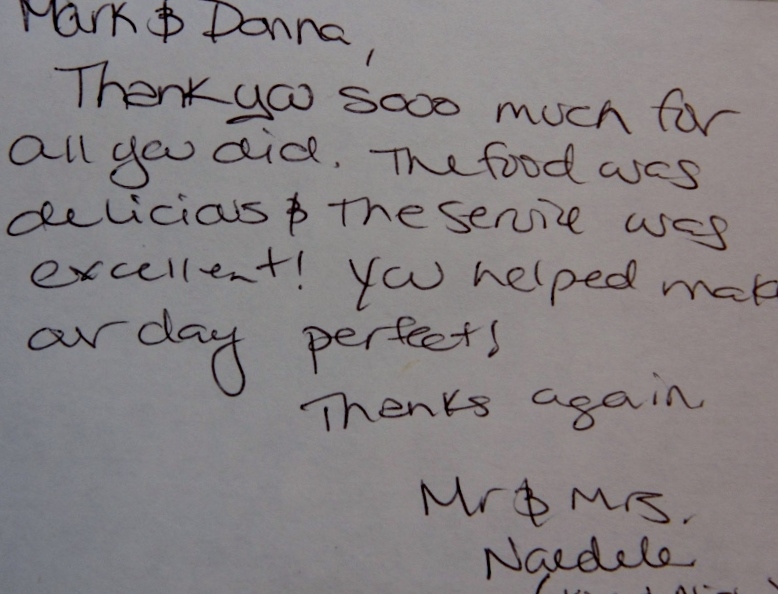 Mark & Donna,
Thank you sooo much for
all you did. The food was
delicious & the service was
excellent! You helped mak
our day perfect!
Thanks again
Mr & Mrs.
Naedele